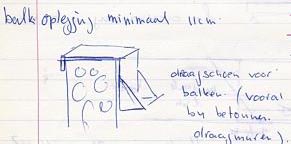 balk oplegging minimaal 11cm.
draagschoen voor
balken. (vooral
by betonnen
draagmuren).